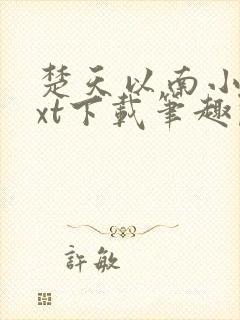 楚天以南小
xt下載筆趣
許敏